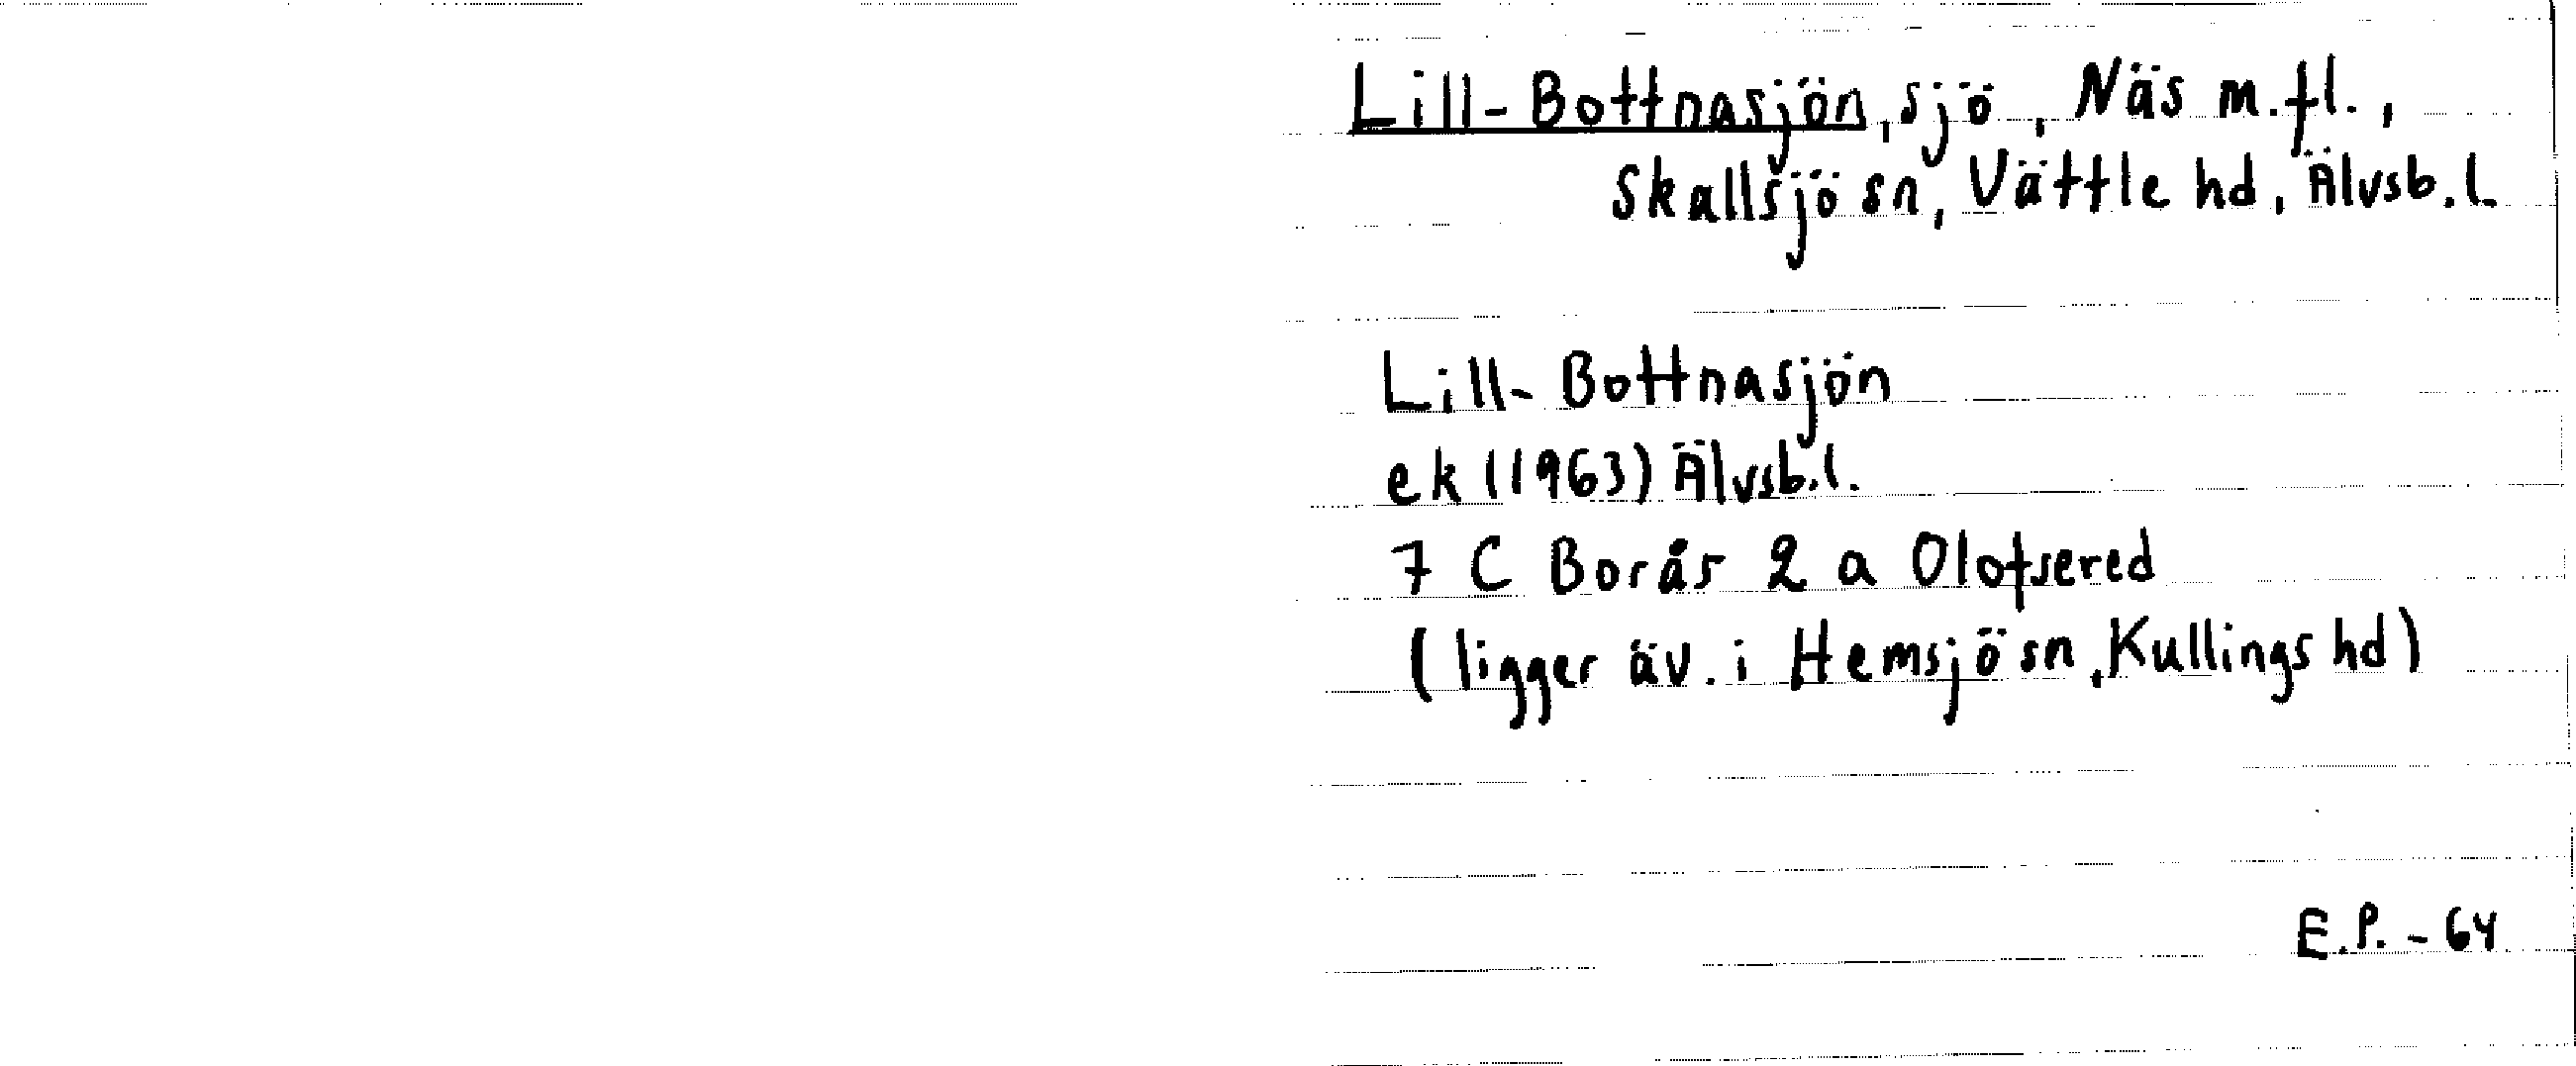 Lill-Bottnasjön, sjö, Näs m.fl.,
Skallsjö sn, Vättle hd, Älvsb.l.
Lill-Bottnasjön
ek (1963) Älvsb.l.
7 C Borås 2 a Olofsered
(ligger äv. i Hemsjö sn, Kullings hd)
E.P. - 64